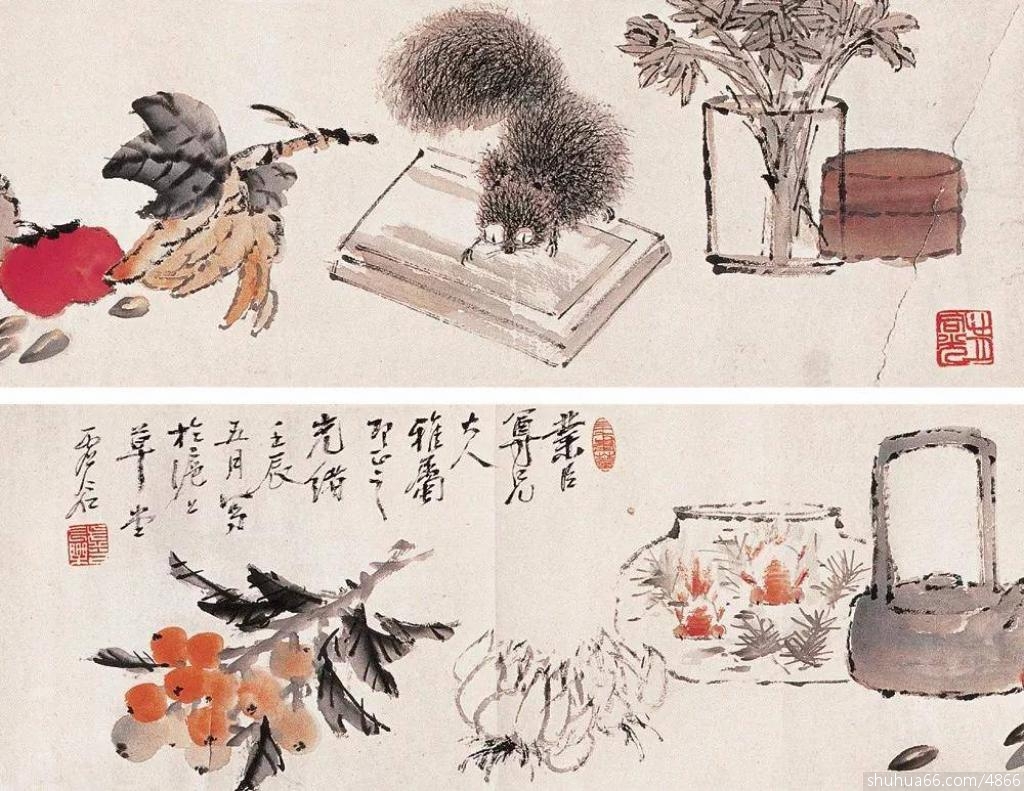 業臣
尊兄
大人
雅屬
即正之
光緒
壬辰
五月寫
於滬上
草堂
虛谷
shuhua66.com/4866